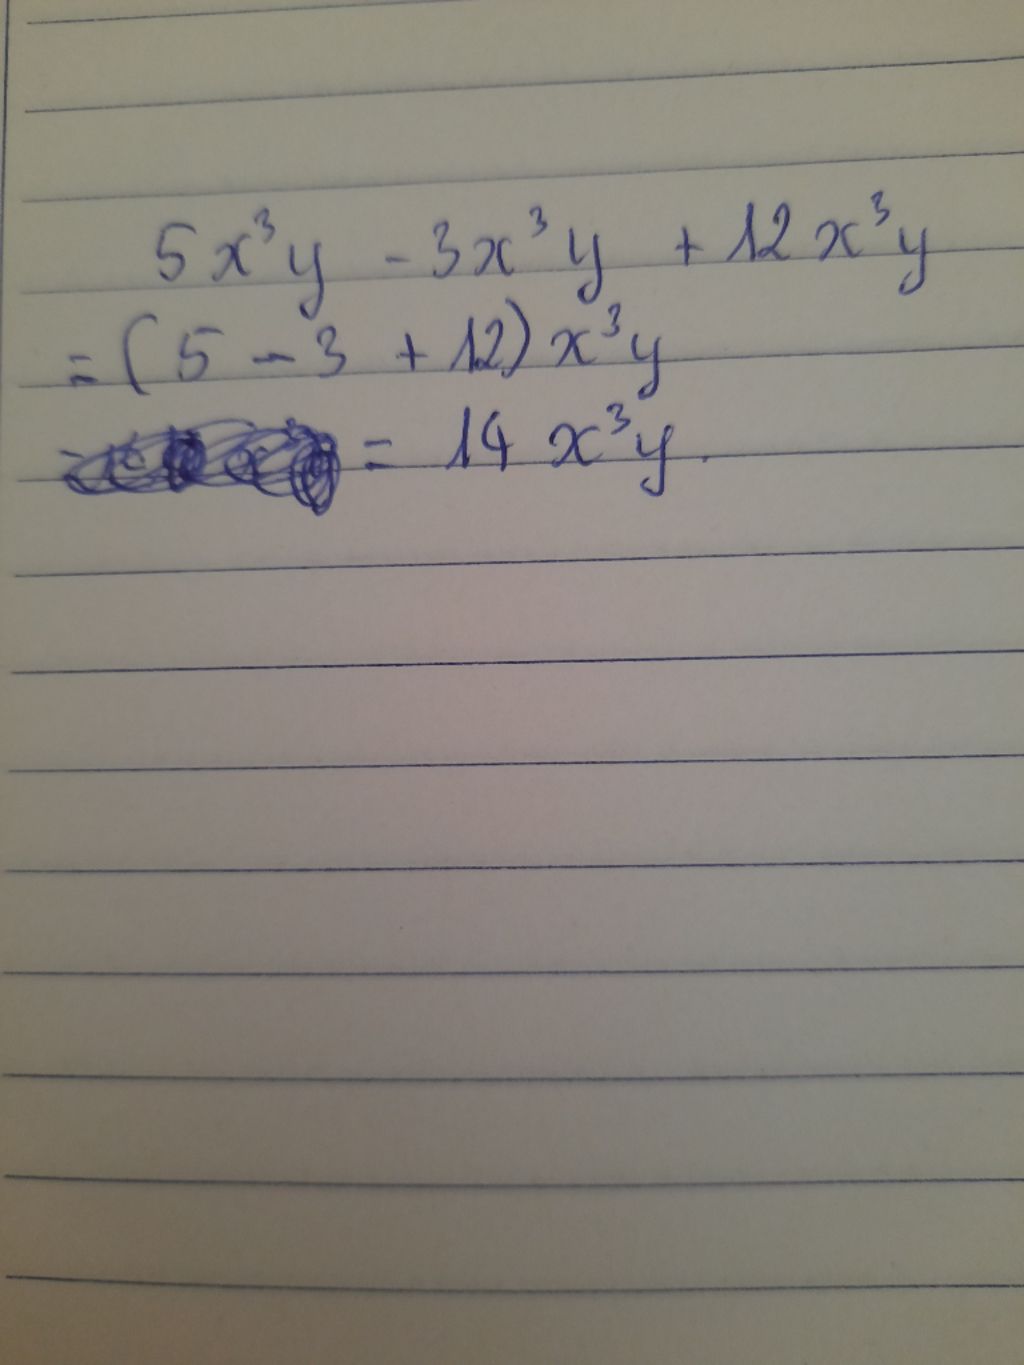 5x³y - 3x³y + 12x³y
= (5 - 3 + 12) x³y
= 14x³y.